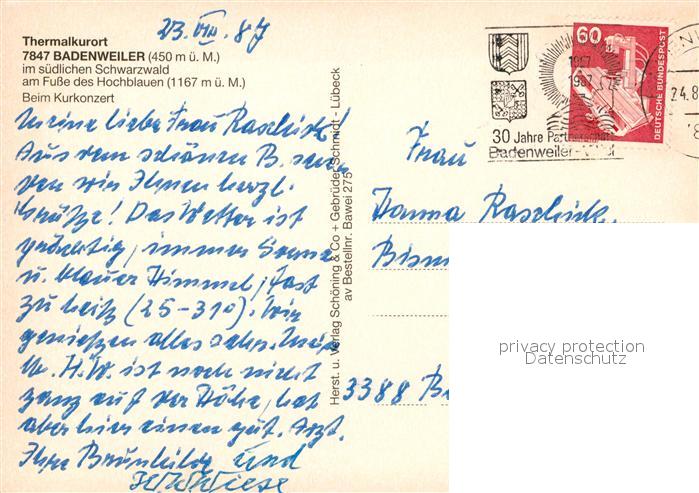 23. VIII. 87
Thermalkurort
7847 BADENWEILER (450 m ü. M.)
im südlichen Schwarzwald
am Fuße des Hochblauen (1167 m ü. M.)
Beim Kurkonzert
Meine liebe Frau Raschick!
Aus dem schönen B. sen-
den wir Ihnen herzl.
Grüße! Das Wetter ist
prächtig, immer Sonne
u. blauer Himmel, fast
zu heiß (25-31°). Wir
genießen alles sehr.
H. W. ist noch nicht
ganz auf der Höhe, hat
aber hier einen gut. Arzt.
Ihre Brunhilde und
Wiese
Herst. u. Verlag Schöning & Co + Gebrüder Schmidt - Lübeck
av Bestellnr. Bawei 275
60
DEUTSCHE BUNDESPOST
1957
1987
30 Jahre Partnerschaft
Badenweiler-
24.8
Frau
Hanna Raschick
Bism
3388 B
privacy protection
Datenschutz